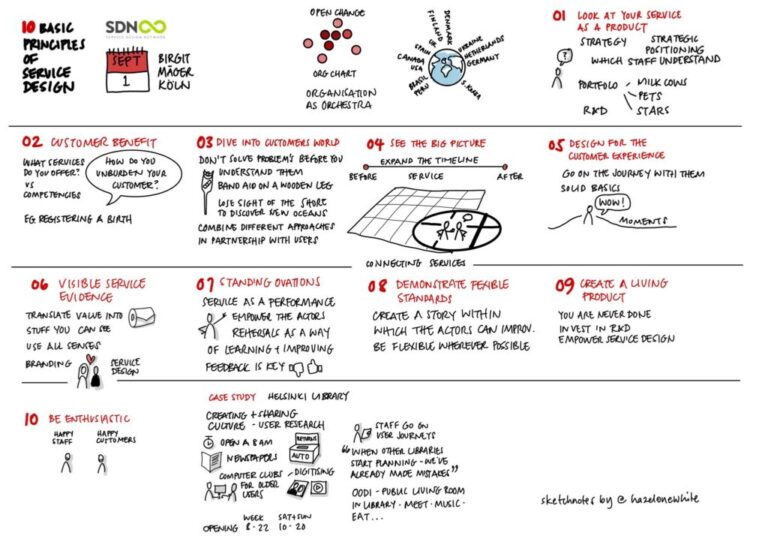 10 BASIC
PRINCIPLES
OF
SERVICE
DESIGN
SDN
SERVICE DESIGN NETWORK
SEPT
1
BIRGIT
MAGER
KÖLN
OPEN CHANGE
ORG CHART
ORGANISATION
AS ORCHESTRA
DENMARK
FINLAND
UK
SPAIN
CANADA
USA
BRASIL
PERU
UKRAINE
NETHERLANDS
GERMANY
S. KOREA
01 LOOK AT YOUR SERVICE
AS A PRODUCT
?
STRATEGY
STRATEGIC
POSITIONING
WHICH STAFF UNDERSTAND
PORTFOLO
MILK COWS
PETS
STARS
R&D
02 CUSTOMER BENEFIT
WHAT SERVICES
DO YOU OFFER?
VS
COMPETENCIES
HOW DO YOU
UNBURDEN YOUR
CUSTOMER?
EG REGISTERING A BIRTH
03 DIVE INTO CUSTOMERS WORLD
DON'T SOLVE PROBLEM'S BEFORE YOU
UNDERSTAND THEM
BAND AID ON A WOODEN LEG
LOSE SIGHT OF THE SHORE
TO DISCOVER NEW OCEANS
COMBINE DIFFERENT APPROACHES
IN PARTNERSHIP WITH USERS
04 SEE THE BIG PICTURE
EXPAND THE TIMELINE
BEFORE SERVICE AFTER
CONNECTING SERVICES
05 DESIGN FOR THE
CUSTOMER EXPERIENCE
GO ON THE JOURNEY WITH THEM
SOLID BASICS
WOW!
MOMENTS
06 VISIBLE SERVICE
EVIDENCE
TRANSLATE VALUE INTO
STUFF YOU CAN SEE
USE ALL SENSES
BRANDING
SERVICE
DESIGN
07 STANDING OVATIONS
SERVICE AS A PERFORMANCE
EMPOWER THE ACTORS
REHERSALS AS A WAY
OF LEARNING + IMPROVING
FEEDBACK IS KEY
08 DEMONSTRATE FEXIBLE
STANDARDS
CREATE A STORY WITHIN
WHICH THE ACTORS CAN IMPROV.
BE FLEXIBLE WHEREVER POSSIBLE
09 CREATE A LIVING
PRODUCT
YOU ARE NEVER DONE
INVEST IN R&D
EMPOWER SERVICE DESIGN
10 BE ENTHUSIASTIC
HAPPY
STAFF
HAPPY
CUTOMERS
CASE STUDY HELSINKI LIBRARY
CREATING + SHARING
CULTURE - USER RESEARCH
OPEN A 8AM
NEWSPAPERS
RETURNS
AUTO
COMPUTER CLUBS
FOR OLDER
USERS
DIGITISING
OPENING
WEEK
8 - 22
SAT+SUN
10 - 20
STAFF GO ON
USER JOURNEYS
"WHEN OTHER LIBRARIES
START PLANNING - WE'VE
ALREADY MADE MISTAKES"
OODI - PUBLIC LIVING ROOM
IN LIBRARY · MEET · MUSIC ·
EAT...
sketchnotes by @hazelonewhite